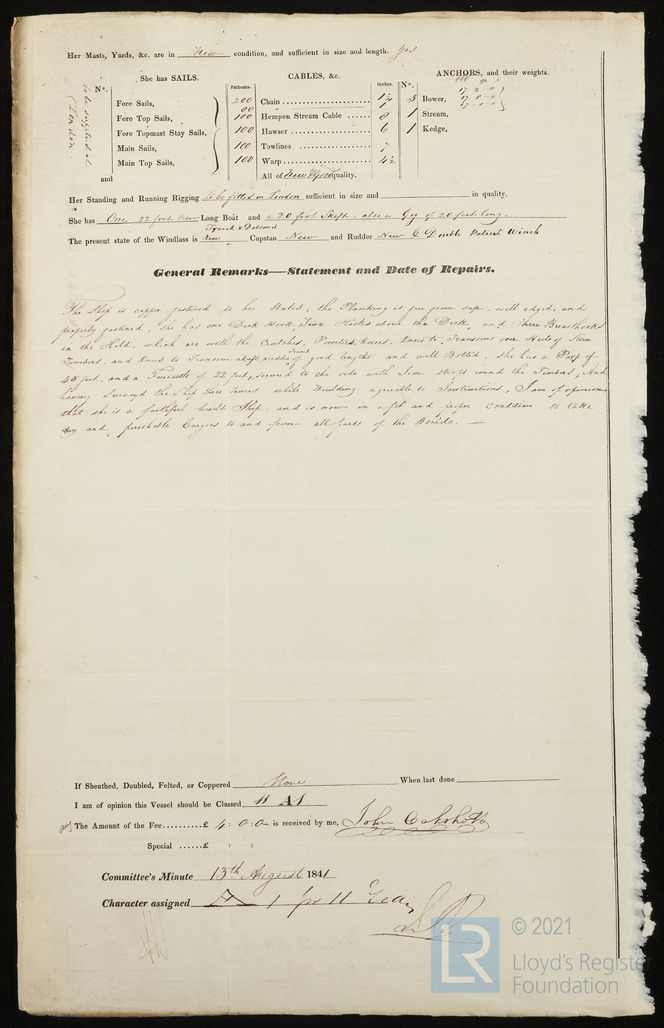 Her Masts, Yards, &c. are in New condition, and sufficient in size and length. Yes
She has SAILS.
CABLES, &c.
ANCHORS, and their weights.
No.
Fathoms.
Inches.
No.
To be supplied at London.
Fore Sails,
Fore Top Sails,
Fore Topmast Stay Sails,
Main Sails,
Main Top Sails,
and
200 Chain
100 Hempen Stream Cable 8
100 Hawser 6
100 Towlines 7
100 Warp 4½
All of New Good quality.
3 Bower, 17-2-0
17-0-0
17-0-0
1 Stream,
1 Kedge,
Her Standing and Running Rigging to be fitted in London sufficient in size and in quality.
She has One 23 foot New Long Boat and a 20 foot Skiff, also a Gig of 20 feet long.
The present state of the Windlass is New Capstan New and Rudder New & Double Patent Winch
General Remarks—Statement and Date of Repairs.
The Ship is copper fastened to her Wales, the Planking is free from sap, well edged, and
properly fastened, she has one Deck Hook, Two Hooks above the Deck, and three Breasthooks
in the Hold, which are with the Crutches, Pointers, knees, to Transoms one Heels of Stern
Timbers, and knees to Transom of good lengths and well Bolted. She has a Poop of
45 feet, and a Forecastle of 22 feet, secured to the side with Iron straps round the Timbers, And
having Surveyd the Ship three times while Building agreeable to Instructions, I am of opinion
that she is a faithful built Ship, and is now in a fit and proper condition to take
dry and perishable Cargoes to and from all parts of the World. —
If Sheathed, Doubled, Felted, or Coppered None When last done
I am of opinion this Vessel should be Classed 11 A1
The Amount of the Fee..........£ 4 : 0 : 0 is received by me,
Special ......£ : :
Committee's Minute 13th August 1841
Character assigned A 1 for 11 Years
LR
© 2021
Lloyd's Register
Foundation